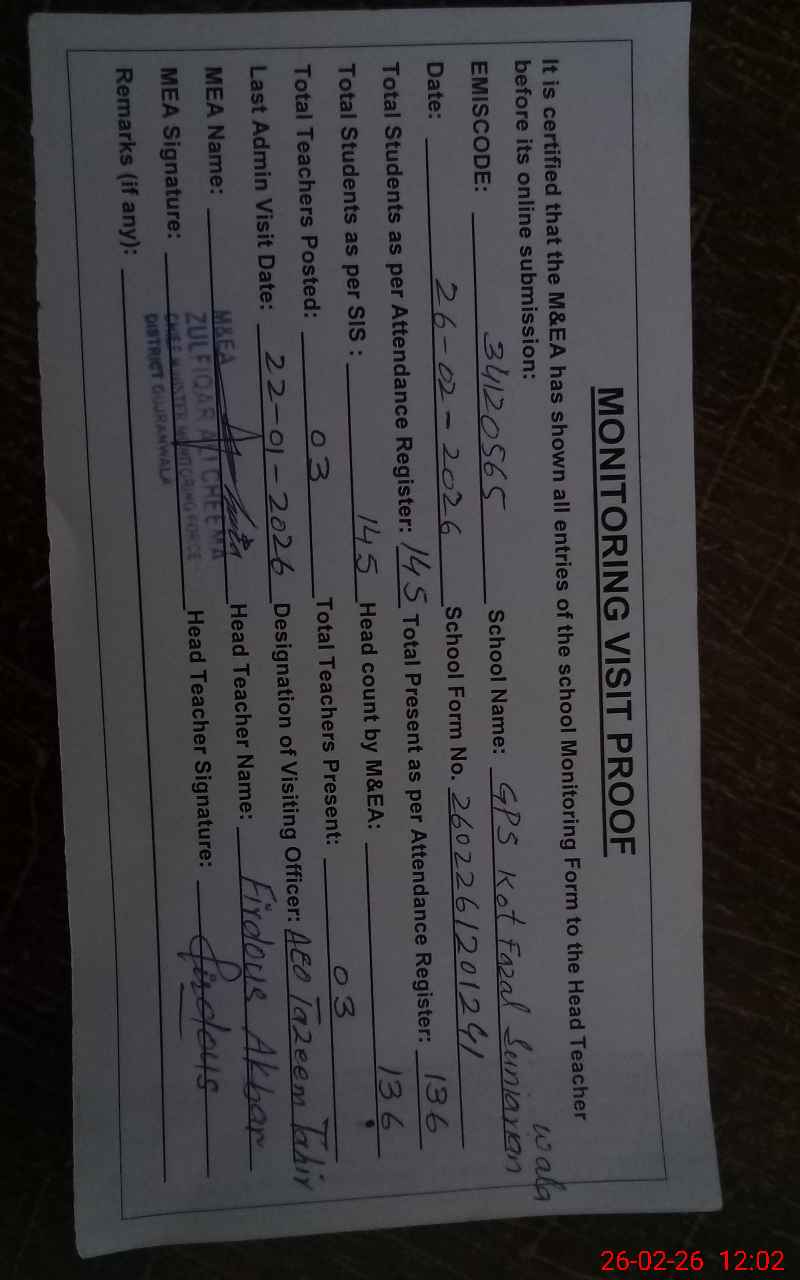 MONITORING VISIT PROOF
It is certified that the M&EA has shown all entries of the school Monitoring Form to the Head Teacher
before its online submission:
EMISCODE: 34120565 School Name: GPS Kot Fazal Suniaran wala
Date: 26-02-2026 School Form No. 2602261201241
Total Students as per Attendance Register: 145 Total Present as per Attendance Register: 136
Total Students as per SIS : 145 Head count by M&EA: 136
Total Teachers Posted: 03 Total Teachers Present: 03
Last Admin Visit Date: 22-01-2026 Designation of Visiting Officer: AEO Tazeem Tahir
MEA Name: Head Teacher Name: Firdous Akbar
MEA Signature: Head Teacher Signature: Firdous
Remarks (if any):
M&EA
ZULFIQAR ALI CHEEMA
CHIEF MINISTER MONITORING FORCE
DISTRICT GUJRANWALA
26-02-26 12:02